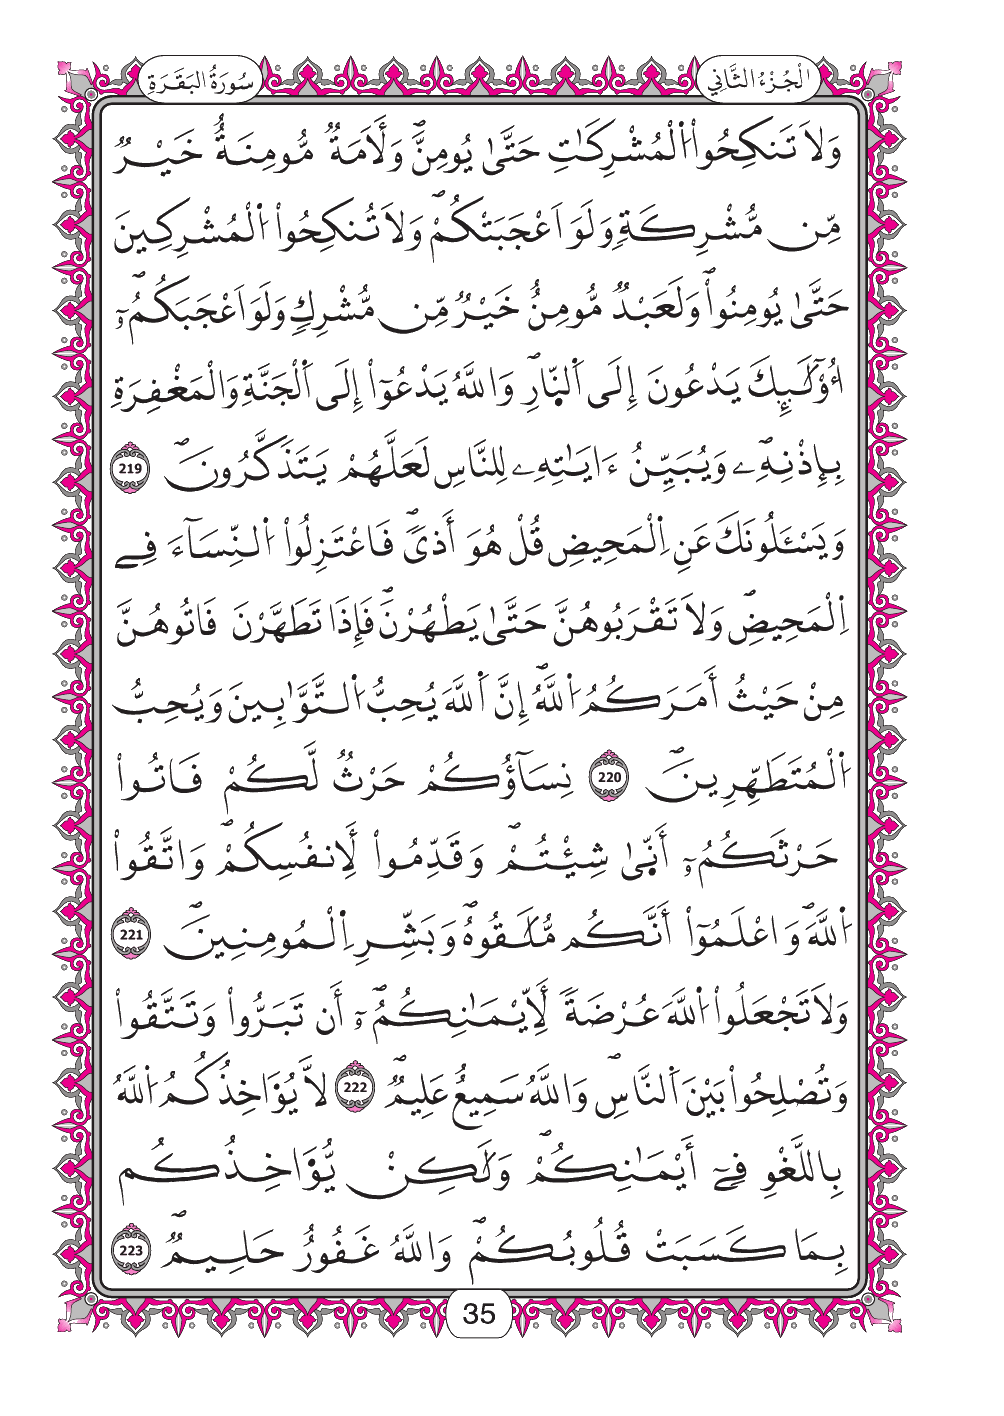 الْجُزْءُ الثَّانِي
سُورَةُ الْبَقَرَةِ
وَلَا تَنكِحُوا۟ اُ۬لْمُشْرِكَٰتِ حَتَّىٰ يُومِنَّۖ وَلَأَمَةٞ مُّومِنَةٌ خَيْرٞ
مِّن مُّشْرِكَةٖ وَلَوَ اَعْجَبَتْكُمْۖ وَلَا تُنكِحُوا۟ اُ۬لْمُشْرِكِينَ
حَتَّىٰ يُومِنُوا۟ۖ وَلَعَبْدٞ مُّومِنٌ خَيْرٞ مِّن مُّشْرِكٖ وَلَوَ اَعْجَبَكُمُۥٓۖ
أُو۟لَٰٓئِكَ يَدْعُونَ إِلَى اَ۬لنّ۪ارِۖ وَاللَّهُ يَدْعُوٓا۟ إِلَى اَ۬لْجَنَّةِ وَالْمَغْفِرَةِ
بِإِذْنِهِۦۖ وَيُبَيِّنُ ءَايَٰتِهِۦ لِلنَّاسِ لَعَلَّهُمْ يَتَذَكَّرُونَۖ 219
وَيَسْـَٔلُونَكَ عَنِ اِ۬لْمَحِيضِ قُلْ هُوَ أَذىٗۖ فَاعْتَزِلُوا۟ اُ۬لنِّسَآءَ فِے
اِ۬لْمَحِيضِۖ وَلَا تَقْرَبُوهُنَّ حَتَّىٰ يَطْهُرْنَۖ فَإِذَا تَطَهَّرْنَ فَاتُوهُنَّ
مِنْ حَيْثُ أَمَرَكُمُ اُ۬للَّهُۖ إِنَّ اَ۬للَّهَ يُحِبُّ اُ۬لتَّوَّٰبِينَ وَيُحِبُّ
اُ۬لْمُتَطَهِّرِينَۖ 220 نِسَآؤُكُمْ حَرْثٞ لَّكُمْ فَاتُوا۟
حَرْثَكُمُۥٓ أَنّ۪ىٰ شِئْتُمْۖ وَقَدِّمُوا۟ لِأَنفُسِكُمْۖ وَاتَّقُوا۟
اُ۬للَّهَۖ وَاعْلَمُوٓا۟ أَنَّكُم مُّلَٰقُوهُۖ وَبَشِّرِ اِ۬لْمُومِنِينَۖ 221
وَلَا تَجْعَلُوا۟ اُ۬للَّهَ عُرْضَةٗ لِّأَيْمَٰنِكُمُۥٓۖ أَن تَبَرُّوا۟ وَتَتَّقُوا۟
وَتُصْلِحُوا۟ بَيْنَ اَ۬لنَّاسِۖ وَاللَّهُ سَمِيعٌ عَلِيمٞۖ 222 لَّا يُؤَاخِذُكُمُ اُ۬للَّهُ
بِاللَّغْوِ فِےٓ أَيْمَٰنِكُمْۖ وَلَٰكِنْ يُّؤَاخِذُكُم
بِمَا كَسَبَتْ قُلُوبُكُمْۖ وَاللَّهُ غَفُورٌ حَلِيمٞۖ 223
35